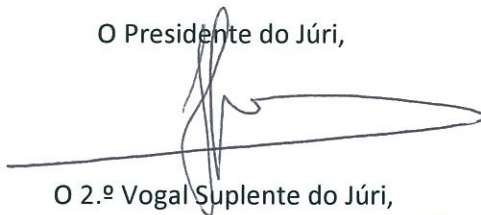 O Presidente do Júri,
O 2.º Vogal Suplente do Júri,